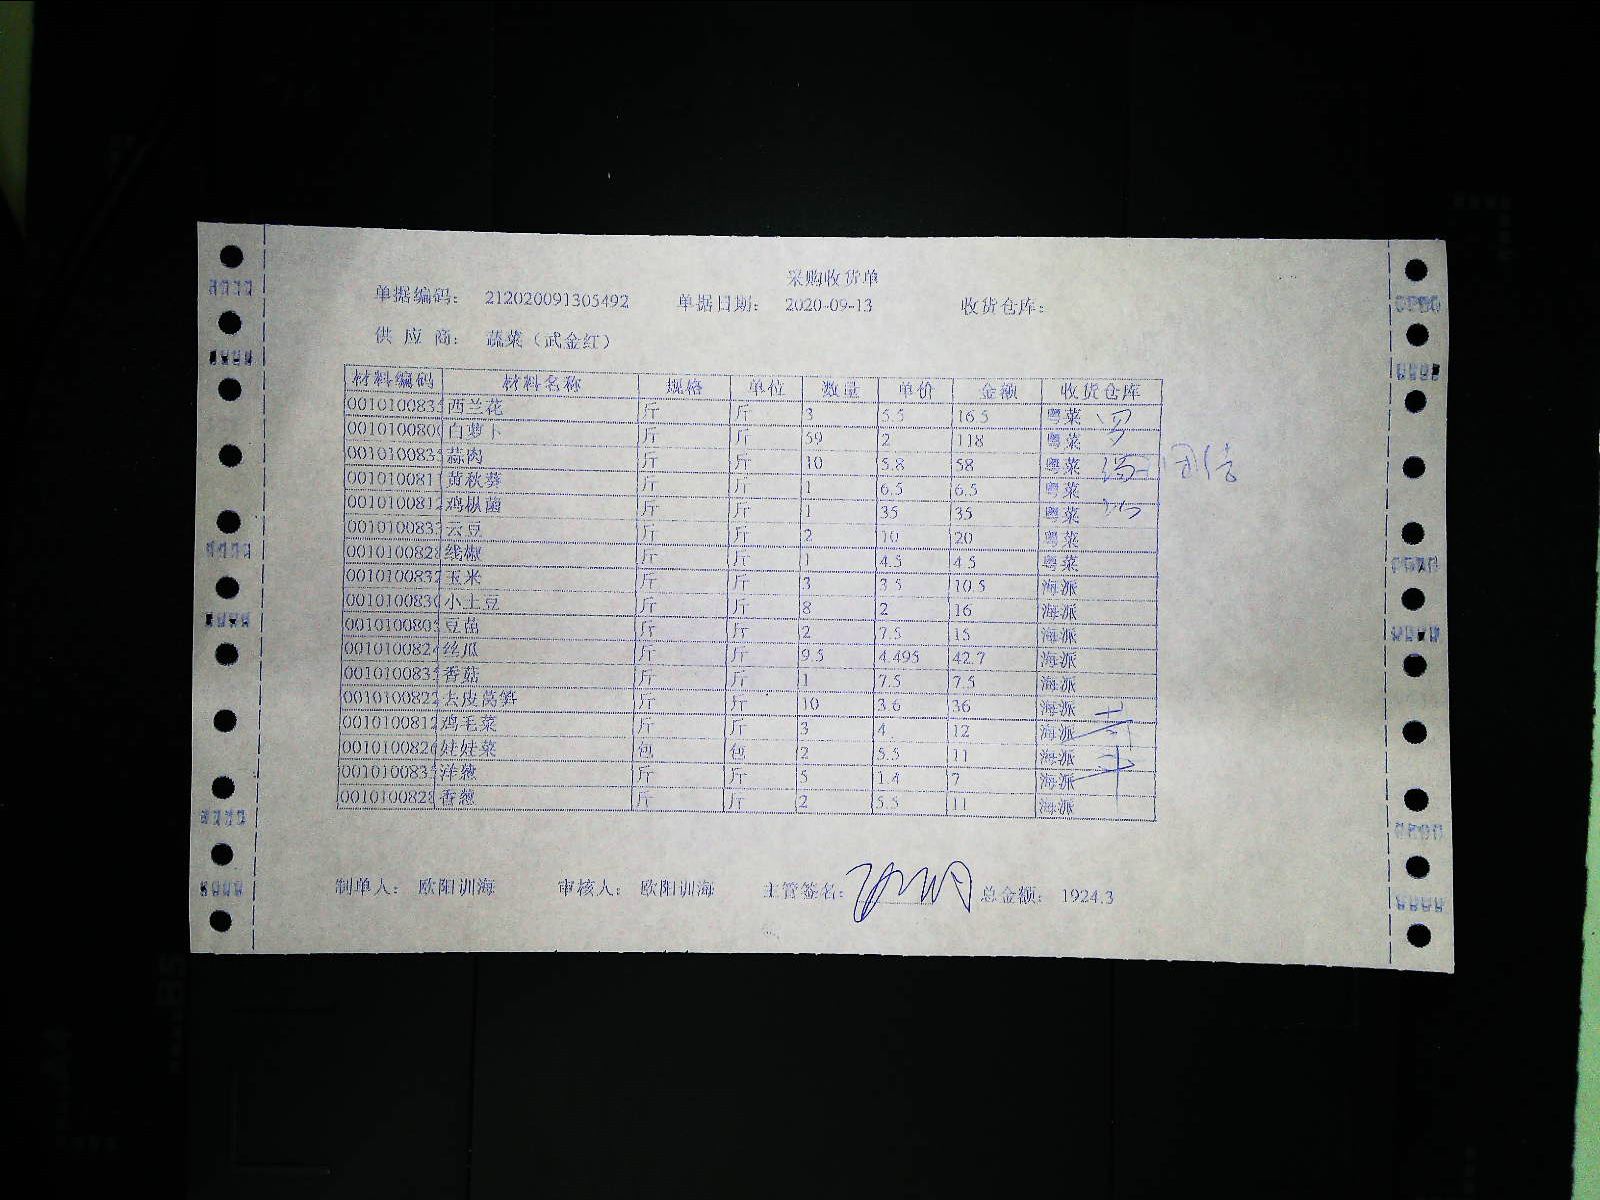 采购收货单
单据编码: 212020091305492 单据日期: 2020-09-13 收货仓库:
供 应 商: 蔬菜（武金红）
材料编码 材料名称 规格 单位 数量 单价 金额 收货仓库
0010100835 西兰花 斤 斤 3 5.5 16.5 粤菜
0010100800 白萝卜 斤 斤 59 2 118 粤菜
0010100835 蒜肉 斤 斤 10 5.8 58 粤菜
0010100811 黄秋葵 斤 斤 1 6.5 6.5 粤菜
0010100812 鸡枞菌 斤 斤 1 35 35 粤菜
0010100833 云豆 斤 斤 2 10 20 粤菜
0010100828 线椒 斤 斤 1 4.5 4.5 粤菜
0010100832 玉米 斤 斤 3 3.5 10.5 海派
0010100830 小土豆 斤 斤 8 2 16 海派
0010100803 豆苗 斤 斤 2 7.5 15 海派
0010100824 丝瓜 斤 斤 9.5 4.495 42.7 海派
0010100835 香菇 斤 斤 1 7.5 7.5 海派
0010100822 去皮莴笋 斤 斤 10 3.6 36 海派
0010100812 鸡毛菜 斤 斤 3 4 12 海派
0010100826 娃娃菜 包 包 2 5.5 11 海派
0010100835 洋葱 斤 斤 5 1.4 7 海派
0010100828 香葱 斤 斤 2 5.5 11 海派
制单人: 欧阳训海 审核人: 欧阳训海 主管签名: 总金额: 1924.3